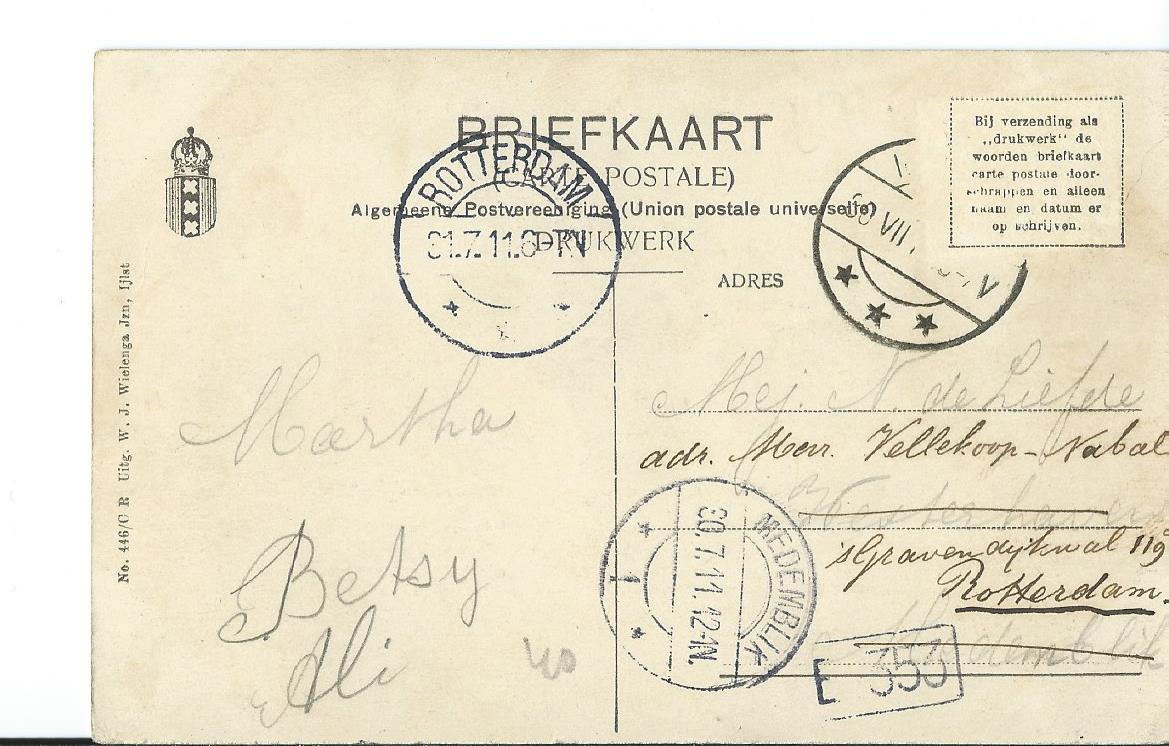 BRIEFKAART
(CARTE POSTALE)
Algemeene Postvereeniging (Union postale universelle)
DRUKWERK
ADRES
Bij verzending als
„drukwerk" de
woorden briefkaart
carte postale door-
schrappen en alleen
naam en datum er
op schrijven.
ROTTERDAM
31.7.11.6-7N
VII
No. 446/C R Uitg. W. J. Wielenga Jzn, Ijlst
Martha
Betsy
Ali
40
Mej. N. de Liefde
adr. Mevr. Vellekoop-Nabal
'sGravendijkwal 119
Rotterdam.
Medemblik
MEDEMBLIK
30.7.11.12-1N.
1
E 353